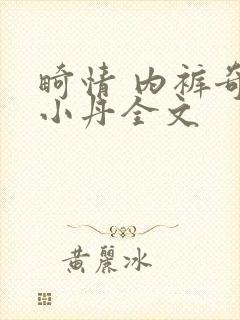 畸情 内裤奇
小丹全文
黄麗冰